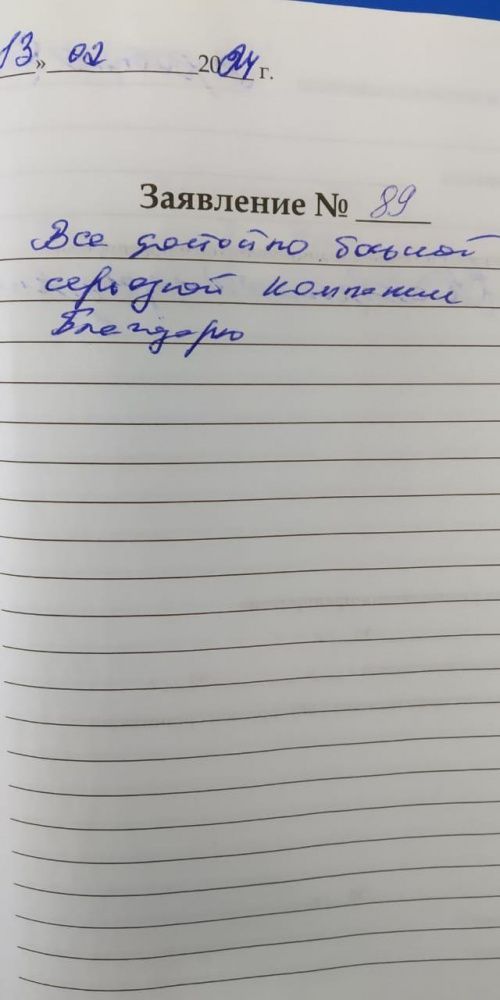 13» 02 2024 г.
Заявление № 89
Все достойно большой
серьезной компании
Благодарю